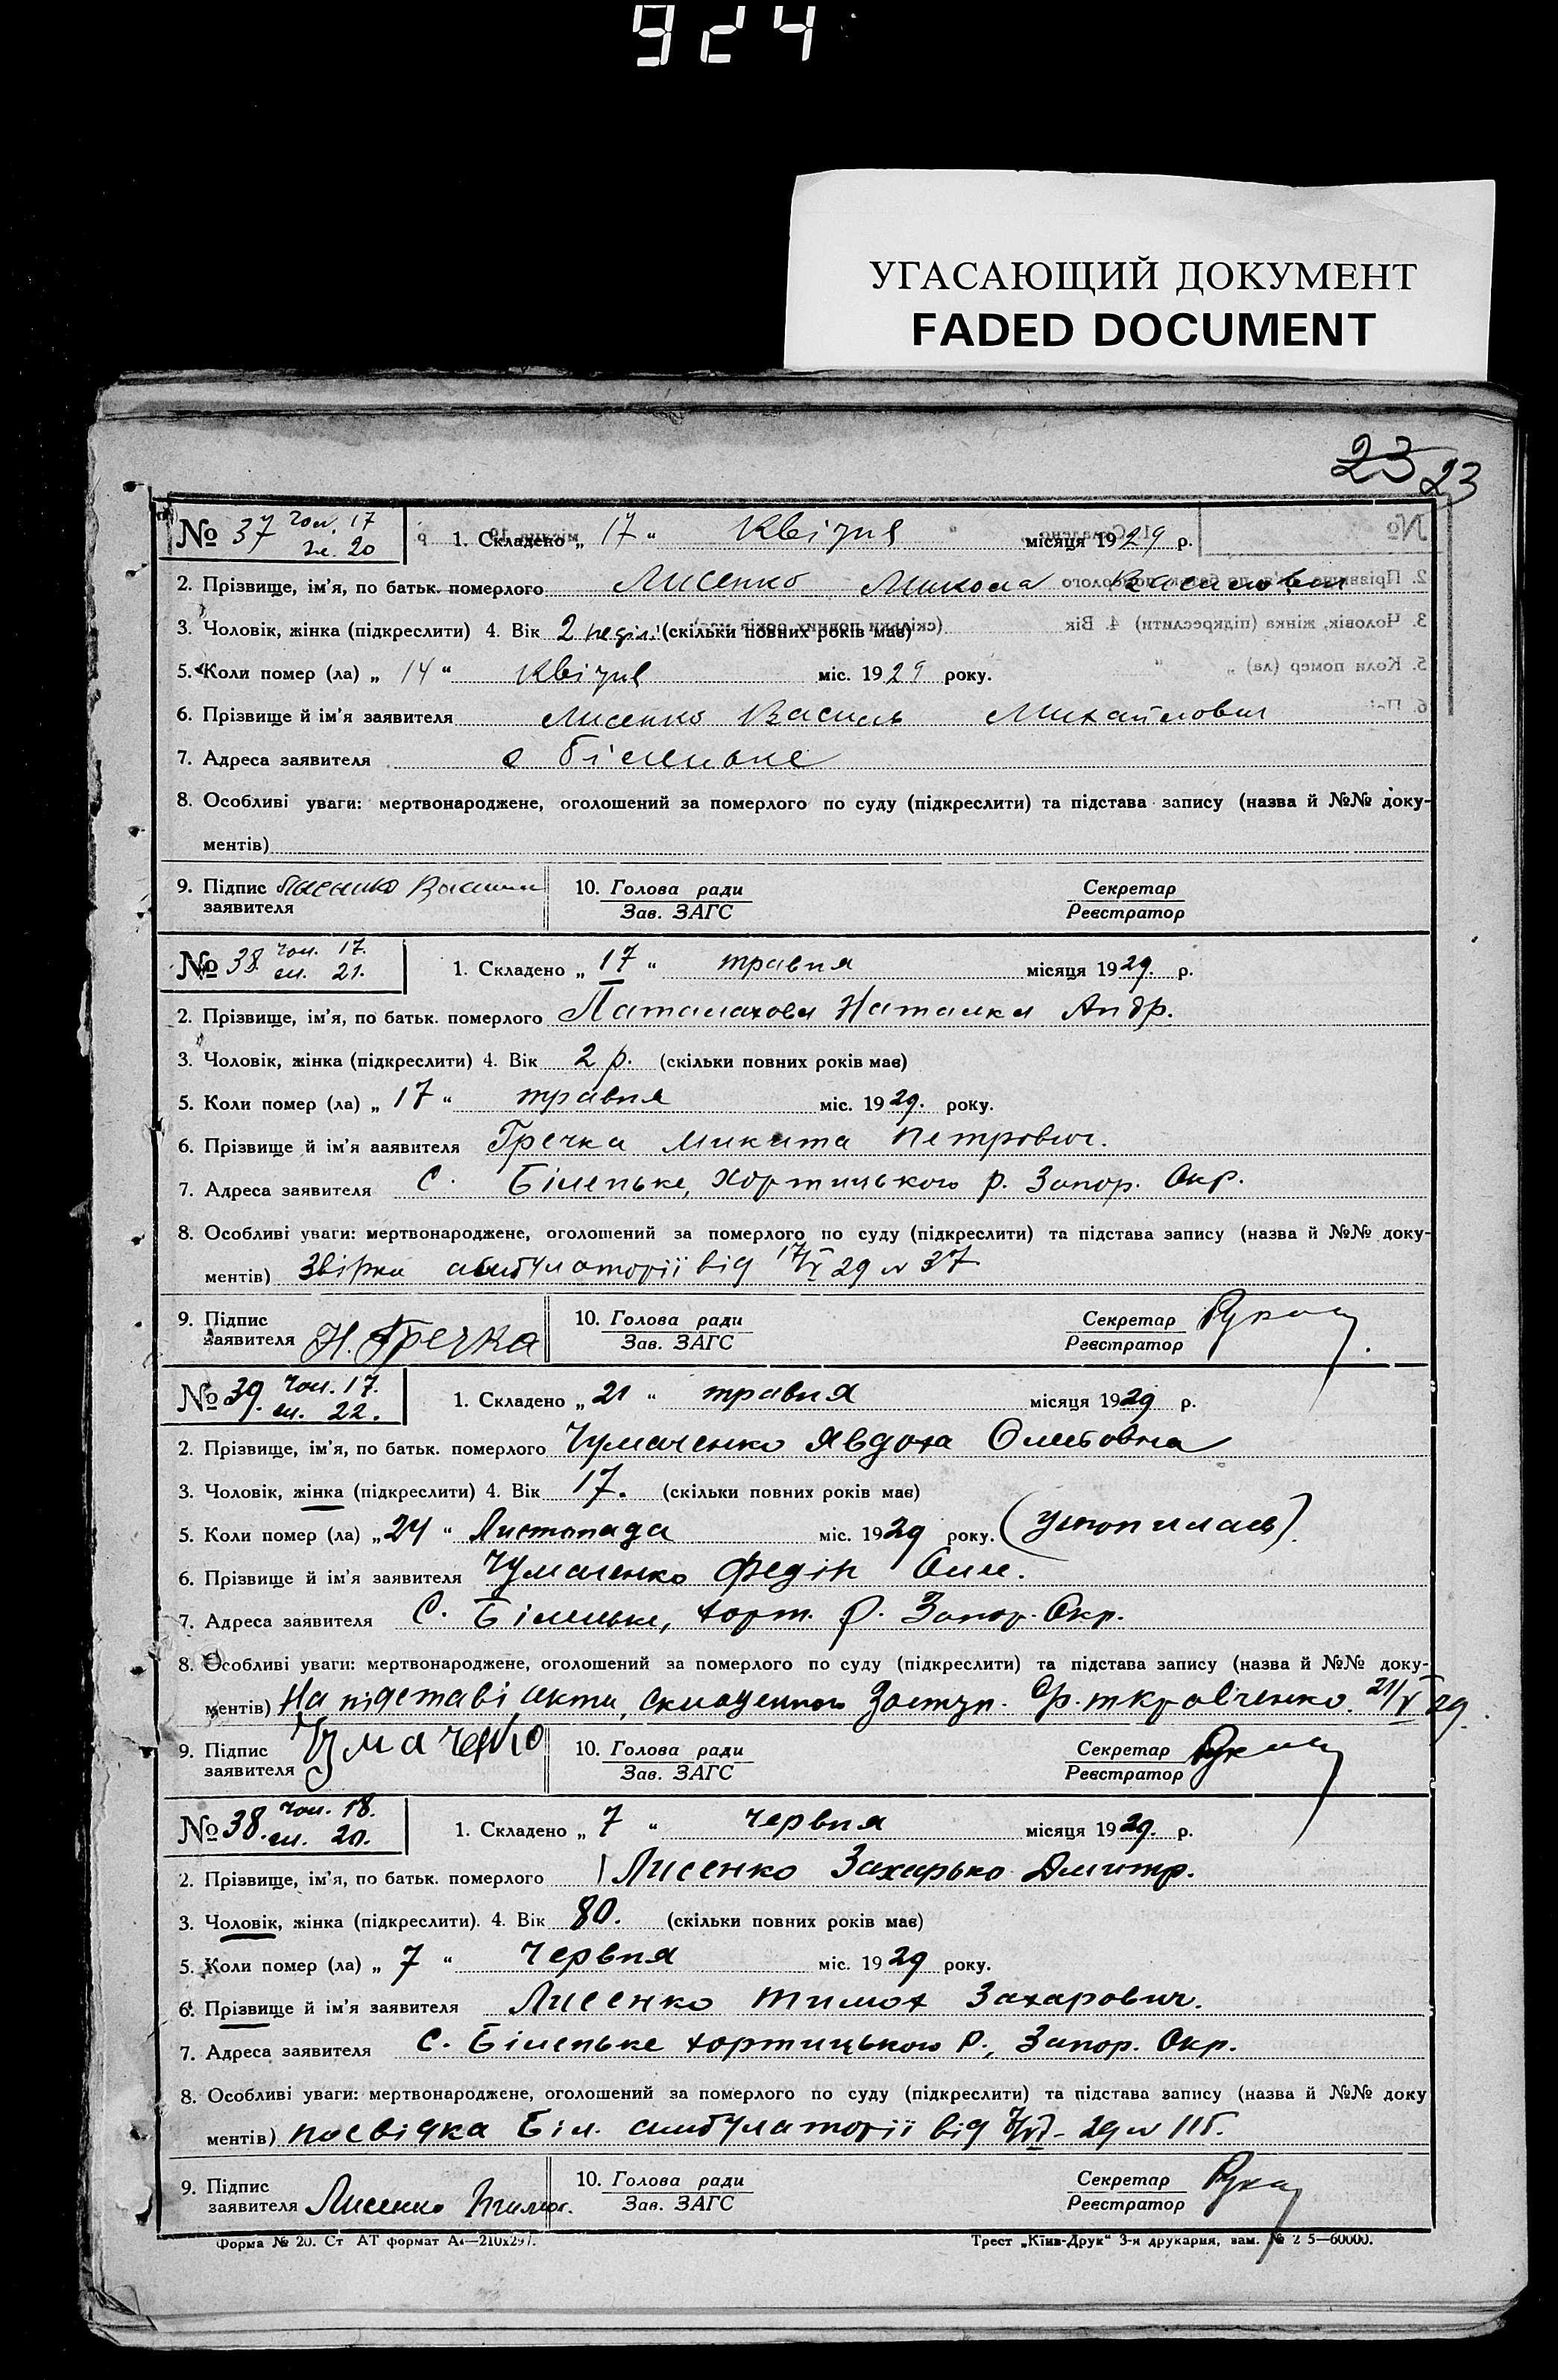 924
УГАСАЮЩИЙ ДОКУМЕНТ
FADED DOCUMENT
23 23
№ 37 чол. 17
ж. 20
1. Складено „ 17 “ Квітня місяця 1929 р.
2. Прізвище, ім'я, по батьк. померлого Лисенко Микола Василович
3. Чоловік, жінка (підкреслити) 4. Вік 2 неділі (скільки повних років має)
5. Коли помер (ла) „ 14 “ Квітня міс. 1929 року.
6. Прізвище й ім'я заявителя Лисенко Василь Михайлович
7. Адреса заявителя с Біленьке
8. Особливі уваги: мертвонароджене, оголошений за померлого по суду (підкреслити) та підстава запису (назва й №№ доку-
ментів)
9. Підпис заявителя Лисенко Василь
10. Голова ради
Зав. ЗАГС
Секретар
Реєстратор
№ 38 чол. 17.
21.
1. Складено „ 17 “ травня місяця 1929. р.
2. Прізвище, ім'я, по батьк. померлого Паталахова Наталка Андр.
3. Чоловік, жінка (підкреслити) 4. Вік 2 р. (скільки повних років має)
5. Коли помер (ла) „ 17 “ травня міс. 1929. року.
6. Прізвище й ім'я заявителя Гречка Микита Петрович.
7. Адреса заявителя С. Біленьке, Хортицького р. Запор. Окр.
8. Особливі уваги: мертвонароджене, оголошений за померлого по суду (підкреслити) та підстава запису (назва й №№ доку-
ментів) амбулаторії від 17/V 29 № 37
9. Підпис заявителя Н. Гречка
10. Голова ради
Зав. ЗАГС
Секретар
Реєстратор
№ 39. чол. 17.
22.
1. Складено „ 21 “ травня місяця 1929 р.
2. Прізвище, ім'я, по батьк. померлого Чумаченко Явдоха
3. Чоловік, жінка (підкреслити) 4. Вік 17. (скільки повних років має)
5. Коли помер (ла) „ 24 “ Листопада міс. 1929 року. (утопилась).
6. Прізвище й ім'я заявителя Чумаченко Федір
7. Адреса заявителя С. Біленьке, Хорт. р. Запор. Окр.
8. Особливі уваги: мертвонароджене, оголошений за померлого по суду (підкреслити) та підстава запису (назва й №№ доку-
ментів) На підставі акта, складенного Заступ. 21/V 29.
9. Підпис заявителя Чумаченко
10. Голова ради
Зав. ЗАГС
Секретар
Реєстратор
№ 38. чол. 18.
20.
1. Складено „ 7 “ червня місяця 1929. р.
2. Прізвище, ім'я, по батьк. померлого Лисенко Захарько Дмитр.
3. Чоловік, жінка (підкреслити). 4. Вік 80. (скільки повних років має)
5. Коли помер (ла) „ 7 “ червня міс. 1929 року.
6. Прізвище й ім'я заявителя Лисенко Тимох Захарович.
7. Адреса заявителя С. Біленьке Хортицького р., Запор. Окр.
8. Особливі уваги: мертвонароджене, оголошений за померлого по суду (підкреслити) та підстава запису (назва й №№ доку
ментів) посвідка Біл. амбулаторії від 7/VI - 29 №
9. Підпис заявителя Лисенко Тимох.
10. Голова ради
Зав. ЗАГС
Секретар
Реєстратор
Форма № 20. Ст АТ формат А4—210х297.
Трест „Київ-Друк“ 3-я друкарня, зам. № 2 5—60000.